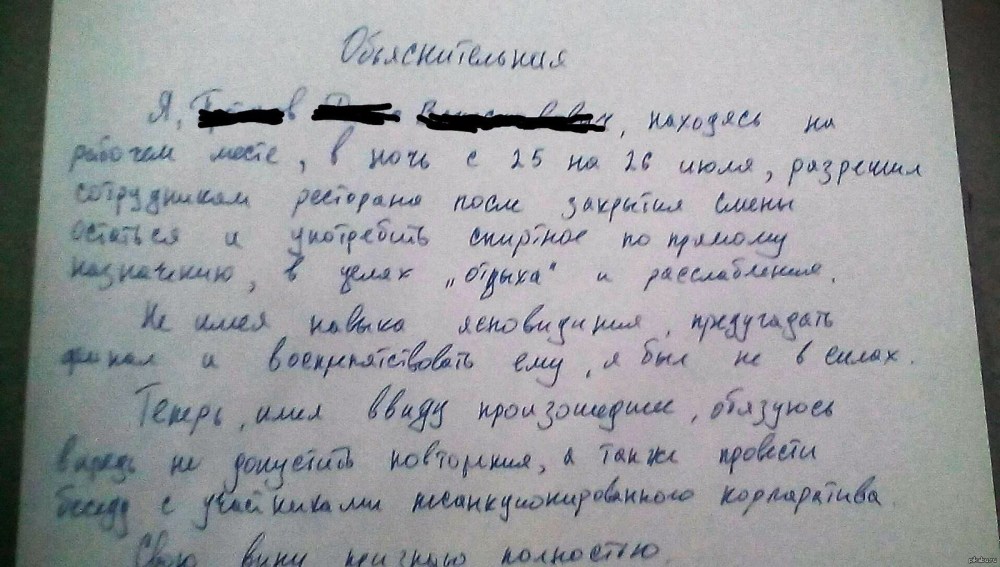 Объяснительная
Я, находясь на
рабочем месте, в ночь с 25 на 26 июля, разрешил
сотрудникам ресторана после закрытия смены
остаться и употребить спиртное по прямому
назначению, в целях „отдыха“ и расслабления.
Не имея навыка ясновидения, предугадать
финал и воспрепятствовать ему, я был не в силах.
Теперь, имея ввиду произошедшее, обязуюсь
впредь не допустить повторения, а также провести
беседу с участниками несанкционированного корпаратива.
Свою вину признаю полностью.